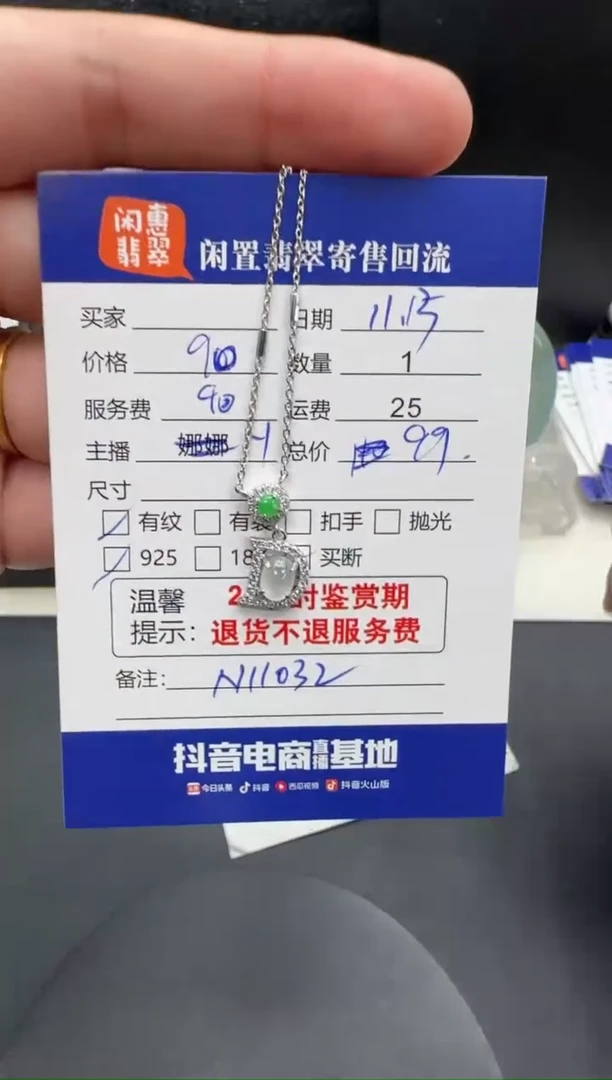 闲惠
翡翠
闲置翡翠寄售回流
买家 日期 11.15
价格 90 数量 1
服务费 90 运费 25
主播 娜娜 总价 99.
尺寸
有纹 有 扣手 抛光
925 18 买断
温馨 2 时鉴赏期
提示: 退货不退服务费
备注: N11032
抖音电商直播基地
今日头条 抖音 西瓜视频 抖音火山版